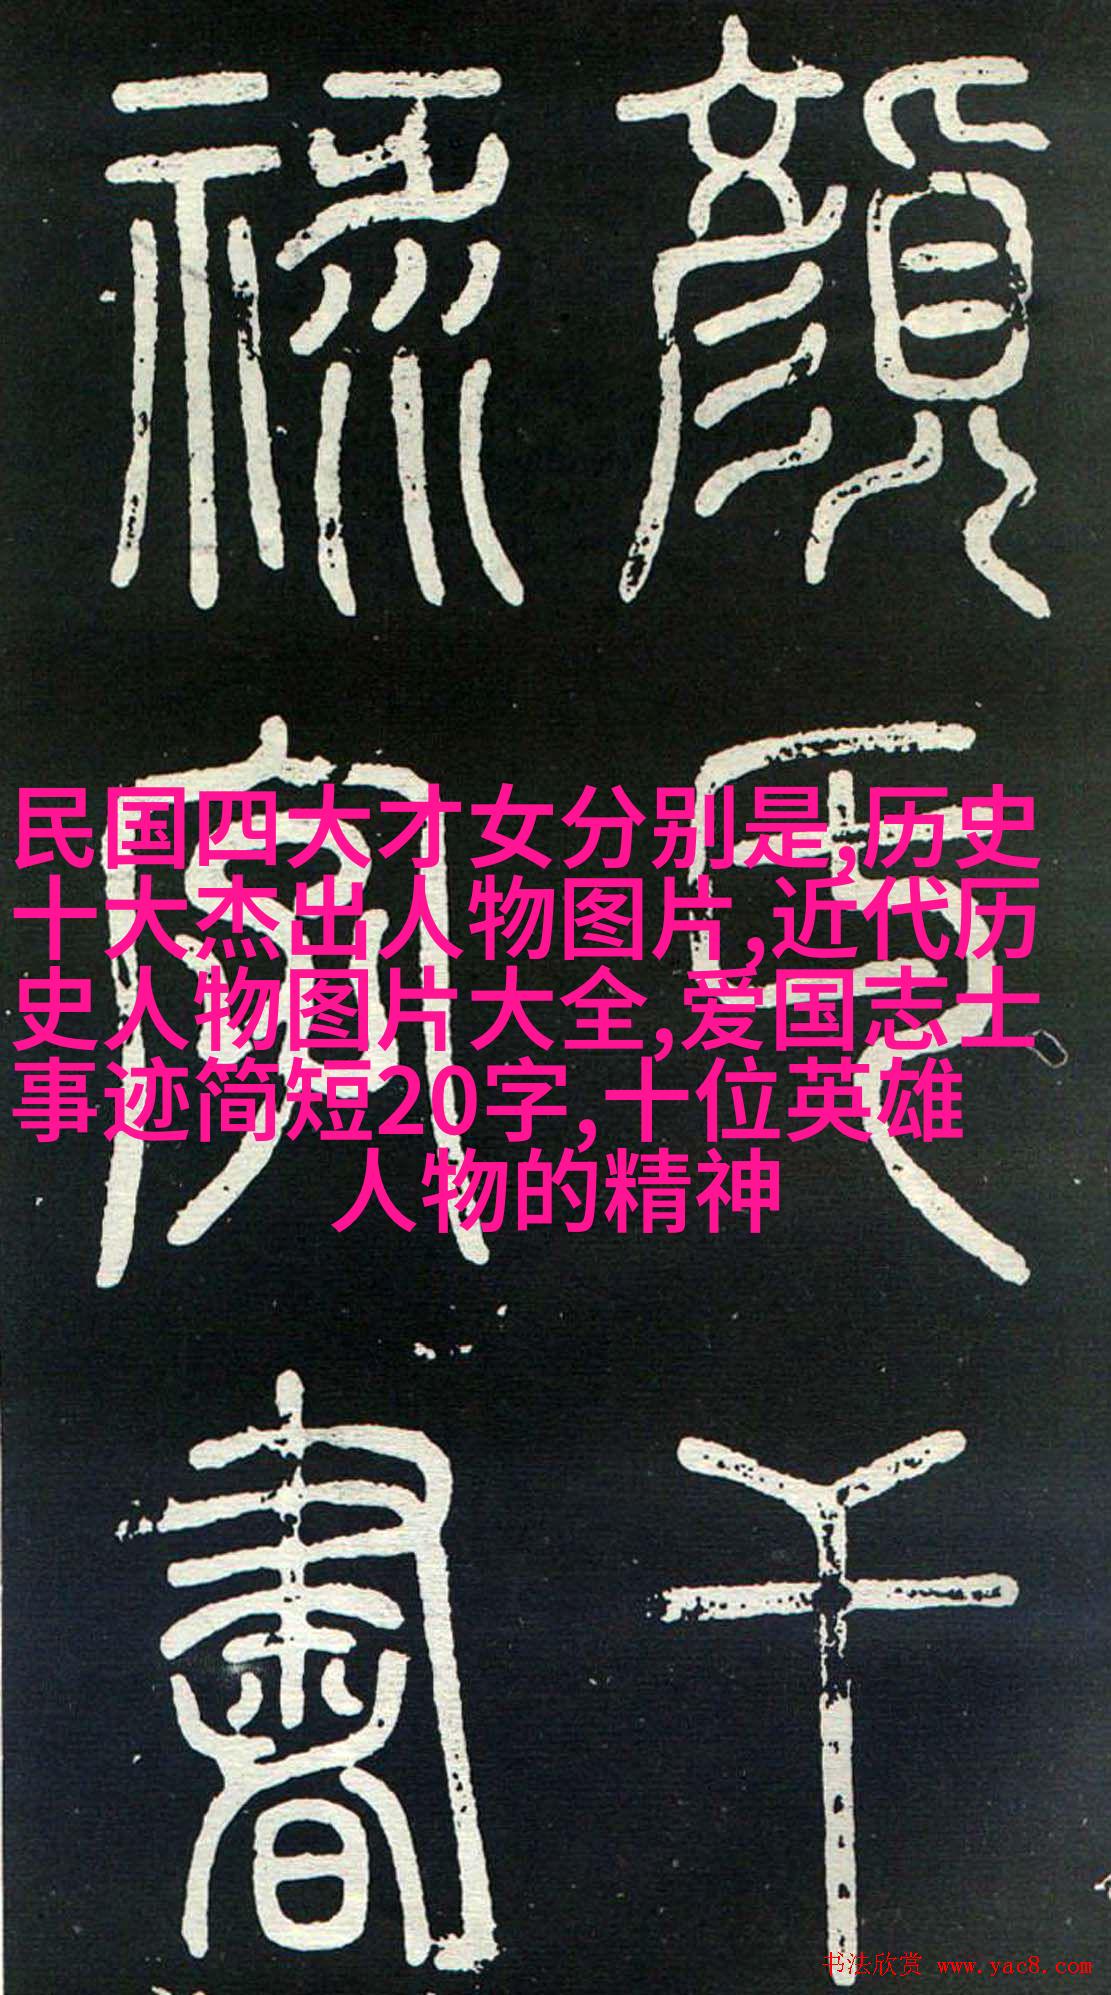 顏氏干
祿字書
民国四大才女分别是,历史
十大杰出人物图片,近代历
史人物图片大全,爱国志士
事迹简短20字,十位英雄
人物的精神
书法欣赏 www.yac8.com